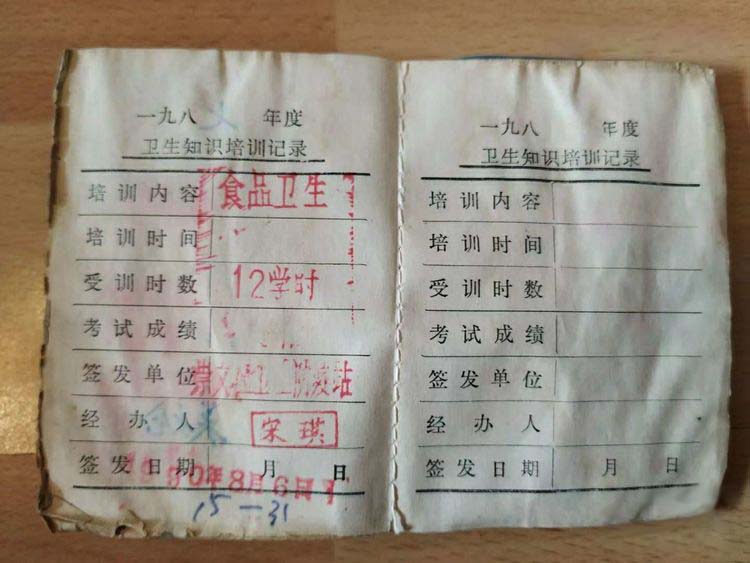 一九八 年度
卫生知识培训记录
培训内容 食品卫生
培训时间
受训时数 12学时
考试成绩
签发单位 防疫站
经办人 宋琪
签发日期 月 日
0年8月6日
15-31
一九八 年度
卫生知识培训记录
培训内容
培训时间
受训时数
考试成绩
签发单位
经办人
签发日期 月 日